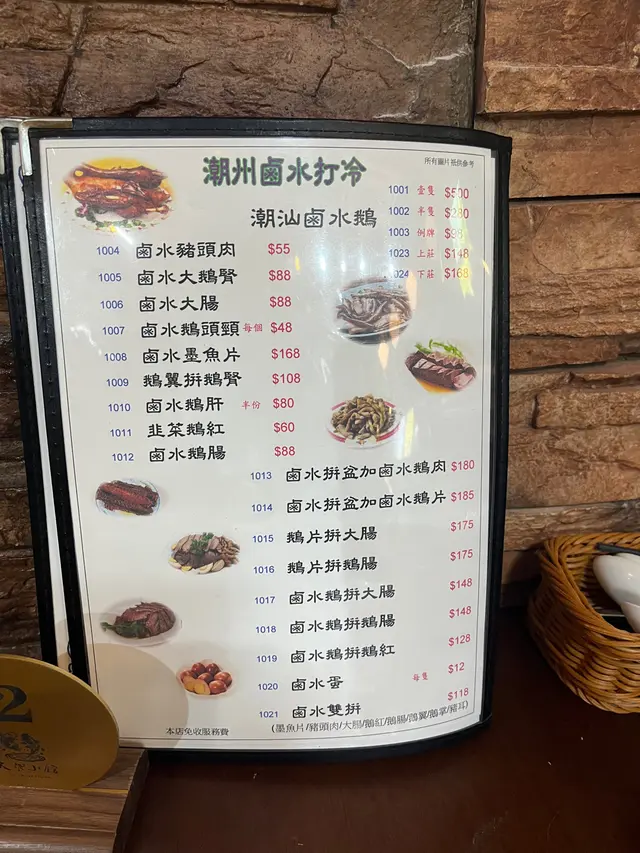 潮州鹵水打冷
所有圖片祇供參考
潮汕鹵水鵝
1001 壹隻 $500
1002 半隻 $280
1003 例牌 $98
1023 上莊 $148
1024 下莊 $168
1004 鹵水豬頭肉 $55
1005 鹵水大鵝腎 $88
1006 鹵水大腸 $88
1007 鹵水鵝頭頸 每個 $48
1008 鹵水墨魚片 $168
1009 鵝翼拼鵝腎 $108
1010 鹵水鵝肝 半份 $80
1011 韭菜鵝紅 $60
1012 鹵水鵝腸 $88
1013 鹵水拼盆加鹵水鵝肉 $180
1014 鹵水拼盆加鹵水鵝片 $185
1015 鵝片拼大腸 $175
1016 鵝片拼鵝腸 $175
1017 鹵水鵝拼大腸 $148
1018 鹵水鵝拼鵝腸 $148
1019 鹵水鵝拼鵝紅 $128
1020 鹵水蛋 每隻 $12
1021 鹵水雙拼 $118
(墨魚片/豬頭肉/大腸/鵝紅/鵝腸/鵝翼/鵝掌/豬耳)
本店免收服務費
2